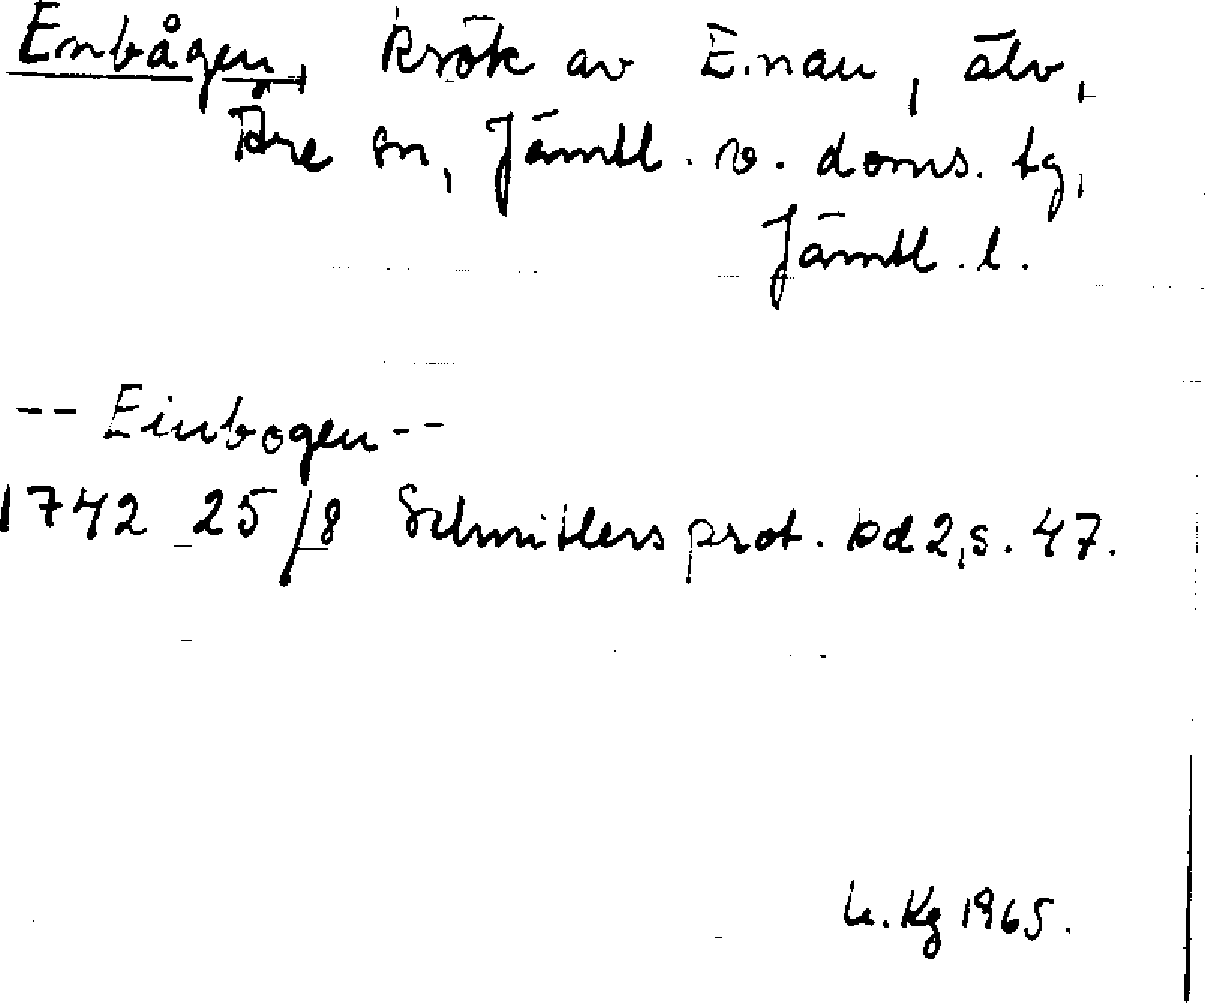 Enbågen, krök av Enan, älv,
Åre sn, Jämtl. v. doms. tg,
Jämtl. l.
-- Einbogen --
1742 25/8 Schnitlers prot. bd 2, s. 47.
Kg 1965.